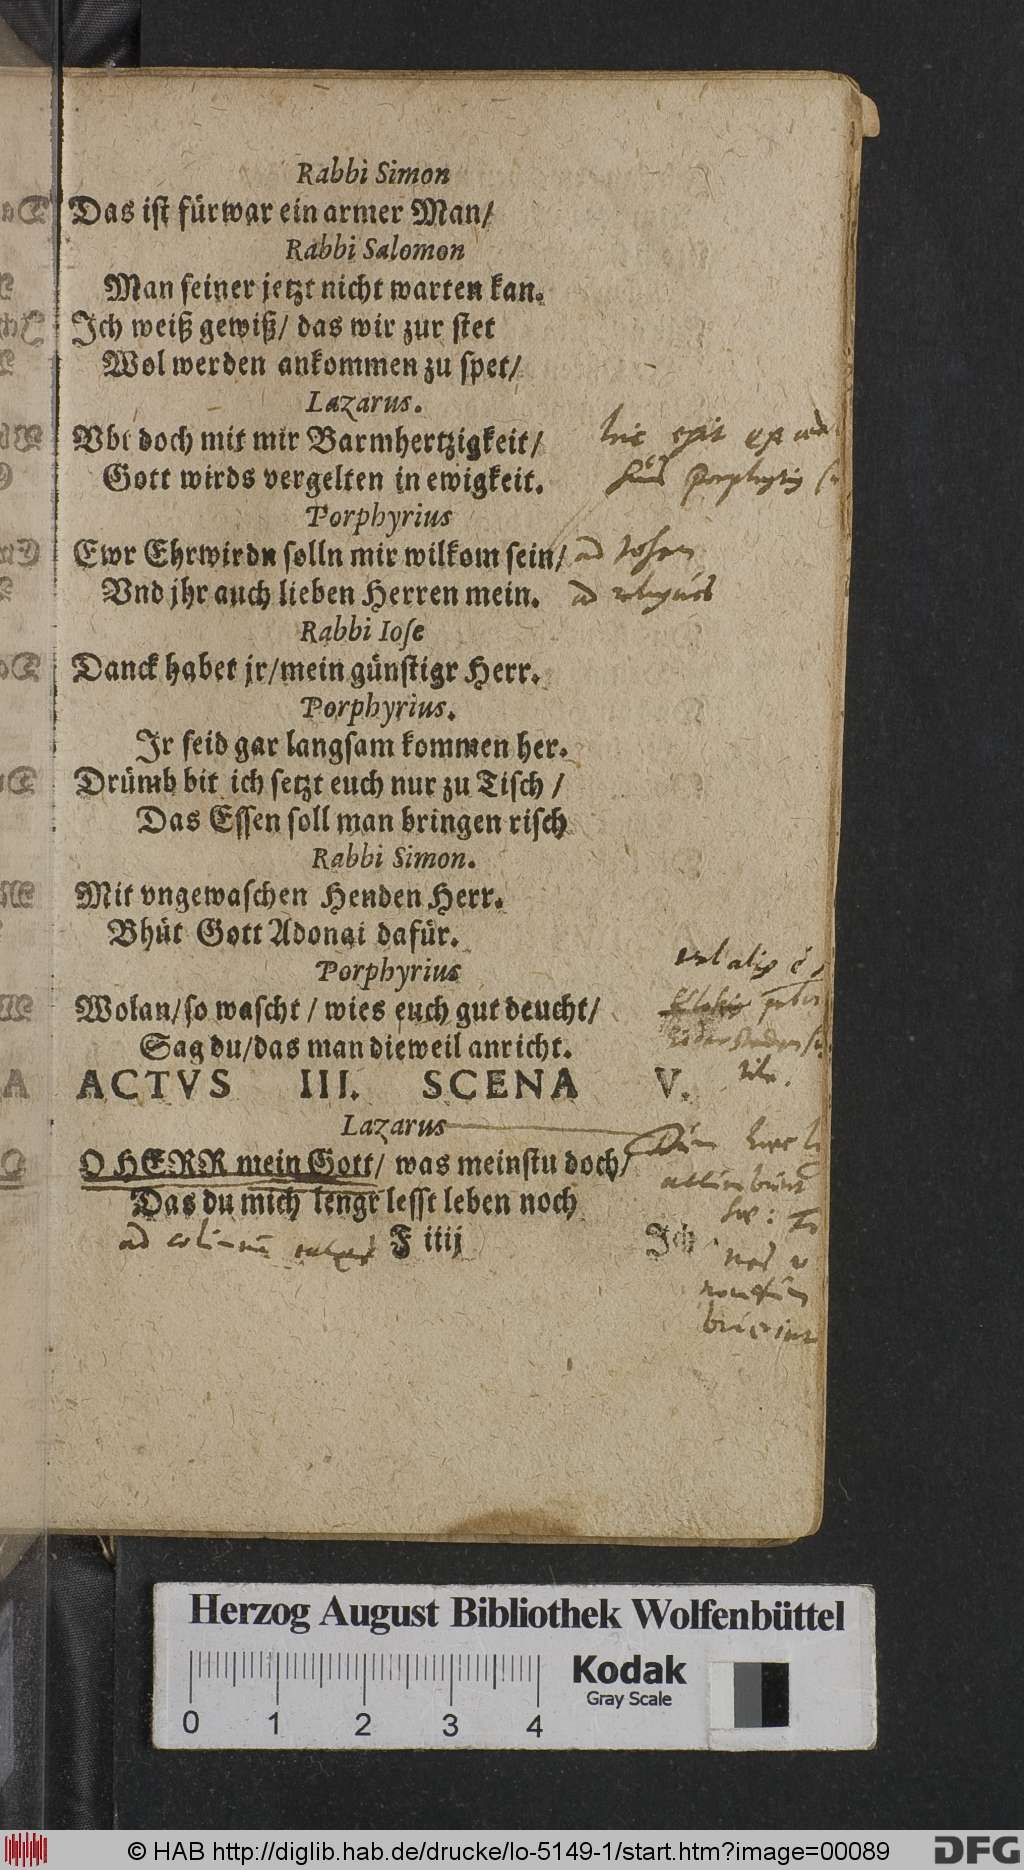 Rabbi Simon
Das iſt fürwar ein armer Man/
Rabbi Salomon
Man ſeiner jetzt nicht warten kan.
Ich weiß gewiß/ das wir zur ſtet
Wol werden ankommen zu ſpet/
Lazarus.
Vbt doch mit mir Barmhertzigkeit/
hic
Gott wirds vergelten in ewigkeit.
Porphyrius
Ewr Ehrwirdn ſolln mir wilkom ſein/ ad
Vnd jhr auch lieben Herren mein. ad
Rabbi Ioſe
Danck habet jr/mein günſtigr Herr.
Porphyrius.
Ir ſeid gar langſam kommen her.
Drümb bit ich ſetzt euch nur zu Tiſch /
Das Eſſen ſoll man bringen riſch
Rabbi Simon.
Mit vngewaſchen Henden Herr.
Bhüt Gott Adonai dafür.
Porphyrius
Wolan/ſo waſcht / wies euch gut deucht/
Sag du/das man dieweil anricht.
ACTVS III. SCENA V.
Lazarus
O HERR mein Gott/ was meinſtu doch/
Das du mich lengr leſſt leben noch
ad
F iiij
Ich
Herzog August Bibliothek Wolfenbüttel
Kodak
Gray Scale
0 1 2 3 4
© HAB http://diglib.hab.de/drucke/lo-5149-1/start.htm?image=00089
DFG